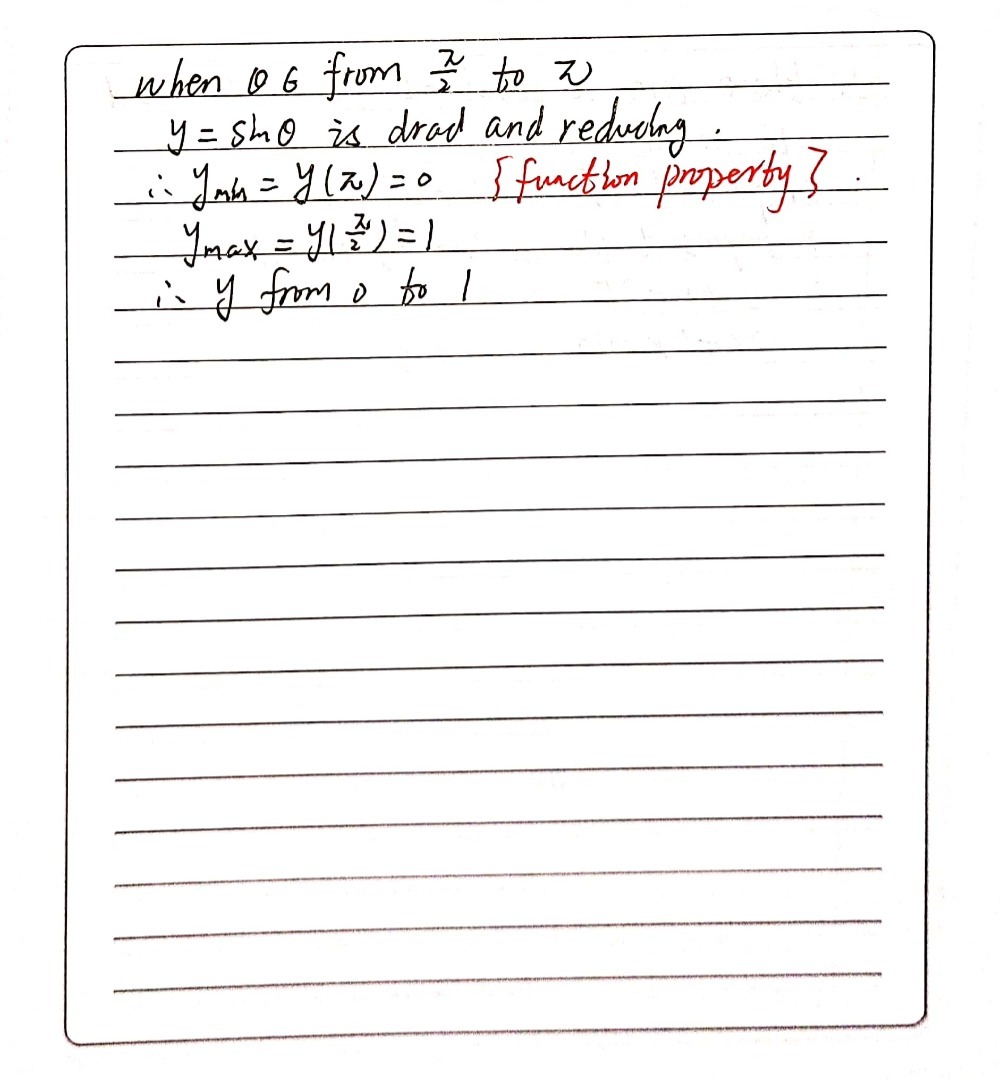 when θ G from π/2 to π
y = sinθ is drad and reducing .
∴ ymin = y(π) = 0 {function property} .
ymax = y(π/2) = 1
∴ y from 0 to 1